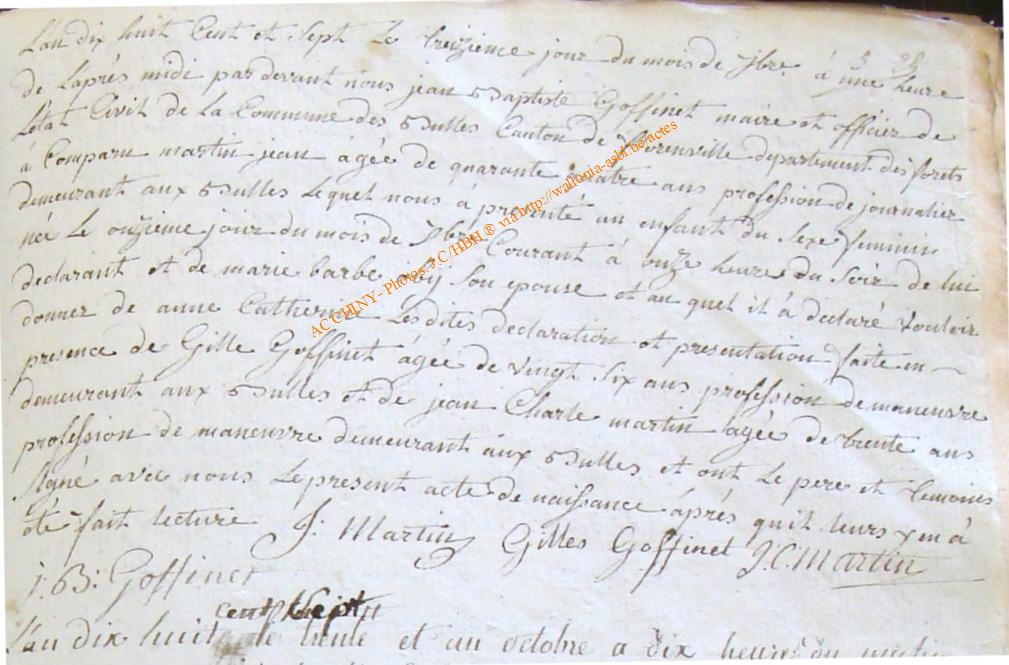 L'an dix huit Cent et Sept Le treizieme jour du mois de 7bre. à une heure
de Laprès midi pardevant nous jean Baptiste Goffinet maire et officier de
L'état Civil de La Commune des Bulles Canton de florenville departement des forets
a Comparu martin jean agée de quarante quatre ans profession de journalier
demeurant aux Bulles Lequel nous à presenté un enfant du Sexe feminin
née Le onzieme jour du mois de 7bre Courant à onze heure du Soir de lui
declarant et de marie barbe Son epouse et au quel il à declaré vouloir
donner de anne Catherine Lesdites declaration et presentation faite en
presence de Gille Goffinet âgée de vingt Six ans profession de maneuvre
demeurant aux Bulles et de jean Charle martin agée de trente ans
profession de maneuvre demeurant aux Bulles et ont Le pere et temoins
Signé avec nous Le present acte de naissance áprés quil leurs y en à
été fait Lecture J. Martin Gilles Goffinet J.C. Martin
j: B: Goffinet
cent Sept
L'an dix huit le trente et un octobre a dix heures du
ACCHINY - Photos: JC/HBH ® via http://wallonia-asbl.be/actes